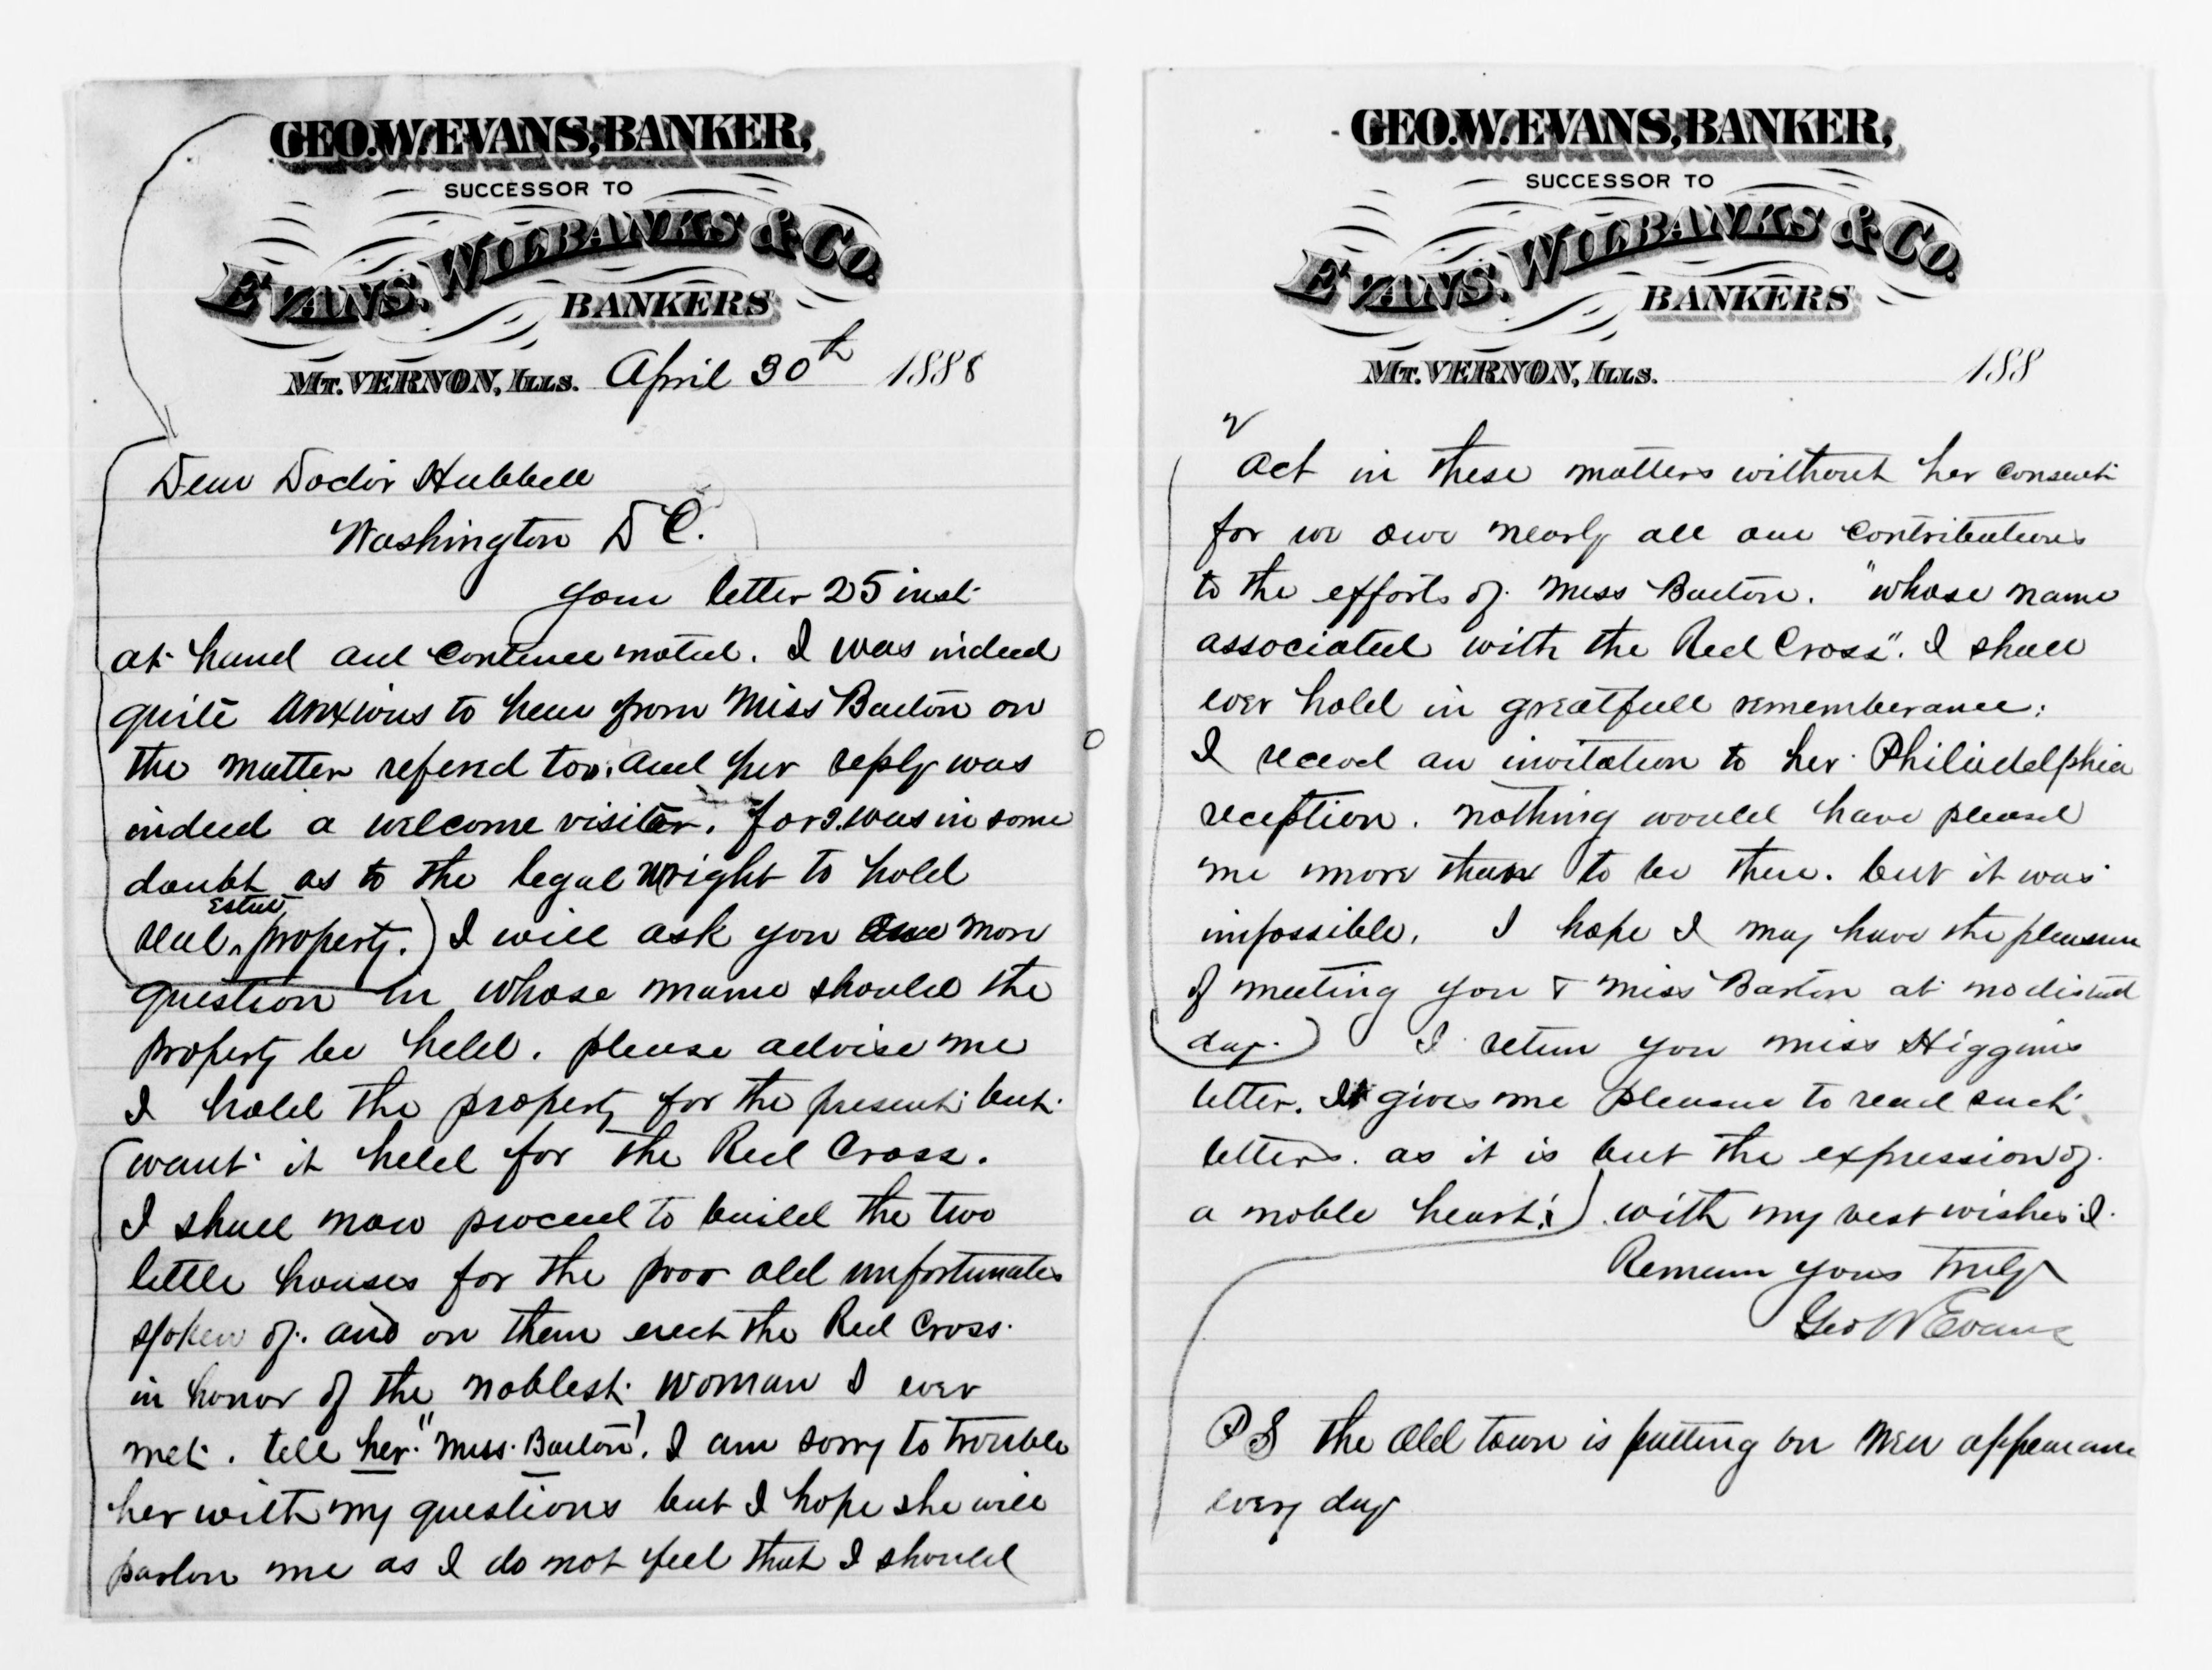 GEO. W. EVANS, BANKER,
SUCCESSOR TO
EVANS, WILBANKS & CO.
BANKERS
MT. VERNON, ILLS. April 30th 1888
Dear Doctor Hubbell
Washington D C.
Your letter 25 inst
at hand and contence noted. I was indeed
quite anxious to hear from Miss Barton on
the matter referd too. and her reply was
indeed a welcome visitor. for I was in some
doubt as to the legal right to hold
Estate
real property. ) I will ask you one more
question in whose name should the
property be held. please advise me
I hold the property for the present but
want it held for the Red Cross.
I shall now proceed to build the two
little houses for the poor old unfortunates
spoken of. and on them erect the Red Cross.
in honor of the noblest woman I ever
met. tell her "Miss Barton". I am sorry to trouble
her with my questions but I hope she will
pardon me as I do not feel that I should
GEO. W. EVANS, BANKER,
SUCCESSOR TO
EVANS, WILBANKS & CO.
BANKERS
MT. VERNON, ILLS. 188
2
act in these matters without her consent
for we owe nearly all our contributions
to the efforts of Miss Barton. "whose name
associated with the Red Cross". I shall
ever hold in greatfull rememberance:
I recevd an invitation to her Philidelphia
reception. nothing would have pleased
me more than to be there. but it was
impossible. I hope I may have the pleasure
of meeting you & Miss Barton at no distant
day. ) I return you Miss Higgins
letter. It gives me pleasure to read such
letters. as it is but the expression of
a noble heart. ) with my best wishes I.
Remain yours Truly
Geo W Evans
P S the old town is putting on new appearance
every day